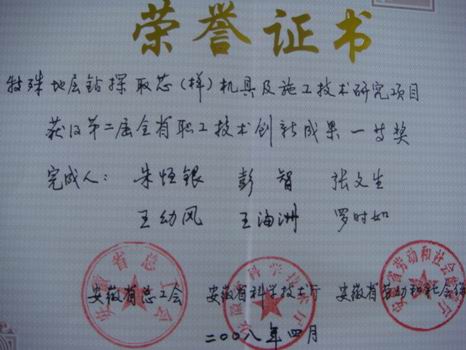 荣誉证书
特殊地层钻探取芯(样)机具及施工技术研究项目
获汉第二届全省职工技术创新成果一等奖
完成人: 朱恒银 彭智 张文生
王幼凤 王海洲 罗时如
安徽省总工会 安徽省科学技术厅 安徽省劳动和社会保
二〇〇八年四月